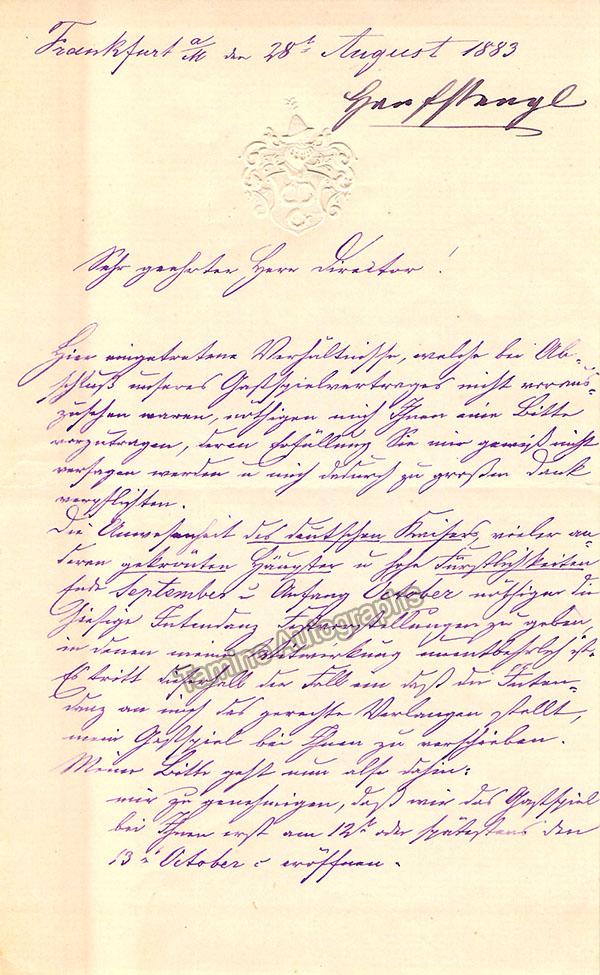 Frankfurt a/M den 28t August 1883
Hanfstängl
Sehr geehrter Herr Director!
Hier eingetretene Verhältnisse, welche bei Ab-
schluß unseres Gastspielvertrages nicht voraus-
zusehen waren, nöthigen mich Ihnen eine Bitte
vorzutragen, deren Erfüllung Sie mir gewiß nicht
versagen werden u mich dadurch zu großen Dank
verpflichten.
Die Anwesenheit des deutschen Kaisers, vieler an-
deren gekrönten Häupter u hohe Fürstlichkeiten
Ende September u Anfang October nöthigen die
hiesige Intendanz Festvorstellungen zu geben,
in denen meine Mitwirkung unentbehrlich ist.
Es tritt dieserhalb der Fall ein daß die Inten-
danz an mich das gerechte Verlangen stellt,
mein Gastspiel bei Ihnen zu verschieben.
Meine Bitte geht nun also dahin:
mir zu genehmigen, daß wir das Gastspiel
bei Ihnen erst am 12t oder spätestens den
13t October eröffnen.
Tamino Autographs